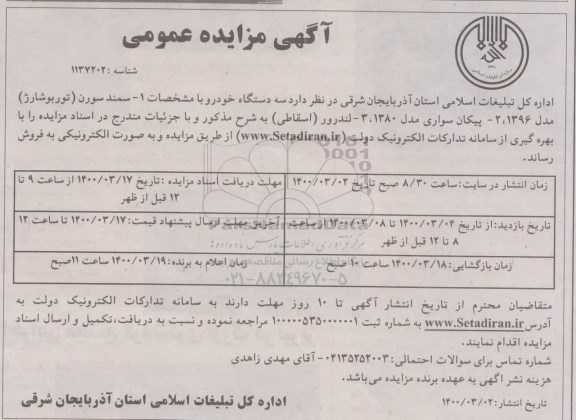 آگهی مزایده عمومی
شناسه : ۱۱۳۷۲۰۲
اداره کل تبلیغات اسلامی استان آذربایجان شرقی در نظر دارد سه دستگاه خودرو با مشخصات ۱- سمند سورن (توربوشارژ)
مدل ۲،۱۳۹۶- پیکان سواری مدل ۳،۱۳۸۰- لندرور (اسقاطی) به شرح مذکور و با جزئیات مندرج در اسناد مزایده را با
بهره گیری از سامانه تدارکات الکترونیک دولت (www.Setadiran.ir) از طریق مزایده و به صورت الکترونیکی به فروش
رساند.
زمان انتشار در سایت: ساعت ۸/۳۰ صبح تاریخ ۱۴۰۰/۰۳/۰۲
مهلت دریافت اسناد مزایده : تاریخ ۱۴۰۰/۰۳/۱۷ از ساعت ۹ تا
۱۲ قبل از ظهر
تاریخ بازدید: از تاریخ ۱۴۰۰/۰۳/۰۴ تا ۱۴۰۰/۰۳/۰۸ از ساعت
۸ تا ۱۲ قبل از ظهر
آخرین مهلت ارسال پیشنهاد قیمت: ۱۴۰۰/۰۳/۱۷ تا ساعت ۱۲
زمان بازگشایی: ۱۴۰۰/۰۳/۱۸ ساعت ۱۰ صبح
زمان اعلام به برنده: ۱۴۰۰/۰۳/۱۹ ساعت ۱۱صبح
متقاضیان محترم از تاریخ انتشار آگهی تا ۱۰ روز مهلت دارند به سامانه تدارکات الکترونیک دولت به
آدرس www.Setadiran.ir به شماره ثبت ۱۰۰۰۰۰۵۳۵۰۰۰۰۰۰۱ مراجعه نموده و نسبت به دریافت،تکمیل و ارسال اسناد
مزایده اقدام نمایند.
شماره تماس برای سوالات احتمالی: ۰۴۱۳۵۲۵۲۰۰۳- آقای مهدی زاهدی
هزینه نشر اگهی به عهده برنده مزایده می‌باشد.
تاریخ انتشار: ۱۴۰۰/۰۳/۰۲
اداره کل تبلیغات اسلامی استان آذربایجان شرقی